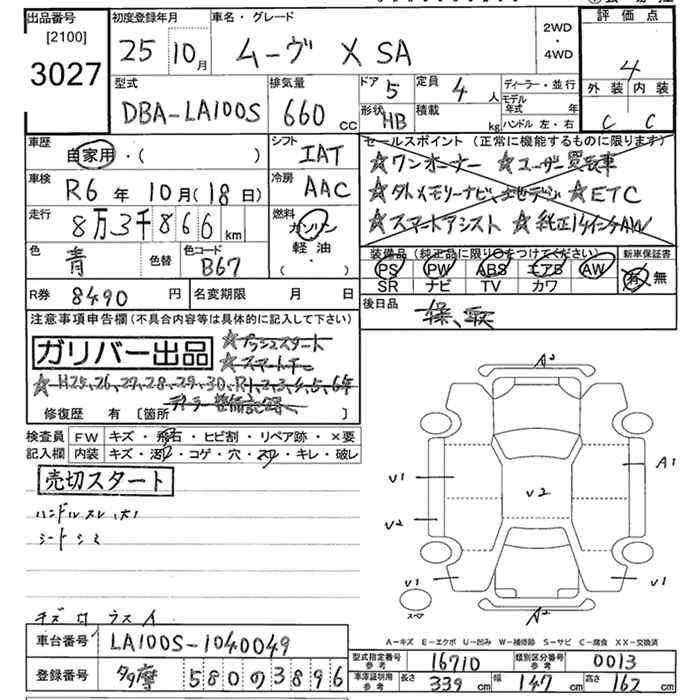 出品番号 初度登録年月 車名・グレード 2WD・4WD 評価点
[2100]
3027 25年 10月 ムーヴ X SA 4
型式 排気量 ドア 5 定員 4人 ディーラー・並行 外装 内装
DBA-LA100S 660cc 形状 HB 積載 kg モデル年式 年 ハンドル 左・右 C C
車歴 自家用・( ) シフト IAT セールスポイント(正常に機能するものに限ります)
☆ワンオーナー ☆ユーザー買取車
車検 R6年 10月(18日) 冷房 AAC ☆ナビ ☆ETC
走行 8万3千866km 燃料 ガソリン・軽油・( ) ☆スマートアシスト ☆純正14インチAW
色 青 色替 色コード B67 装備品(純正品に限り○をつけてください) 新車保証書
PS PW ABS エアB AW 有・無
SR ナビ TV カワ
R券 8490円 名変期限 月 日 後日品
注意事項申告欄(不具合内容等は具体的に記入して下さい)
ガリバー出品 ☆プッシュスタート
☆スマートキー
☆H25,26,27,28,29,30,R1,2,3,4,5,6年
ディーラー整備記録
修復歴 有〔箇所 〕
検査員 FW キズ・飛石・ヒビ割・リペア跡・×要
記入欄 内装 キズ・コゲ・穴・スレ・キレ・破レ
売切スタート
ハンドルスレ
シートシミ
A2
U1 A1
U2 U2
U1 U1
スペア A2
A-キズ E-エクボ U-凹み W-補修跡 S-サビ C-腐食 XX-交換済
車台番号 LA100S-1040049
登録番号 多摩 580の3896
型式指定番号 参考 16710 類別区分番号 参考 0013
車庫証明用 参考 長さ 339cm 幅 147cm 高さ 162cm